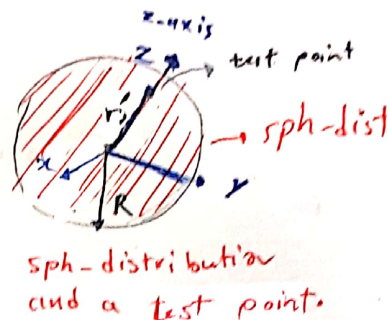 z-axis
z
test point
r'
sph-dist
x
y
R
sph-distribution
and a test point.